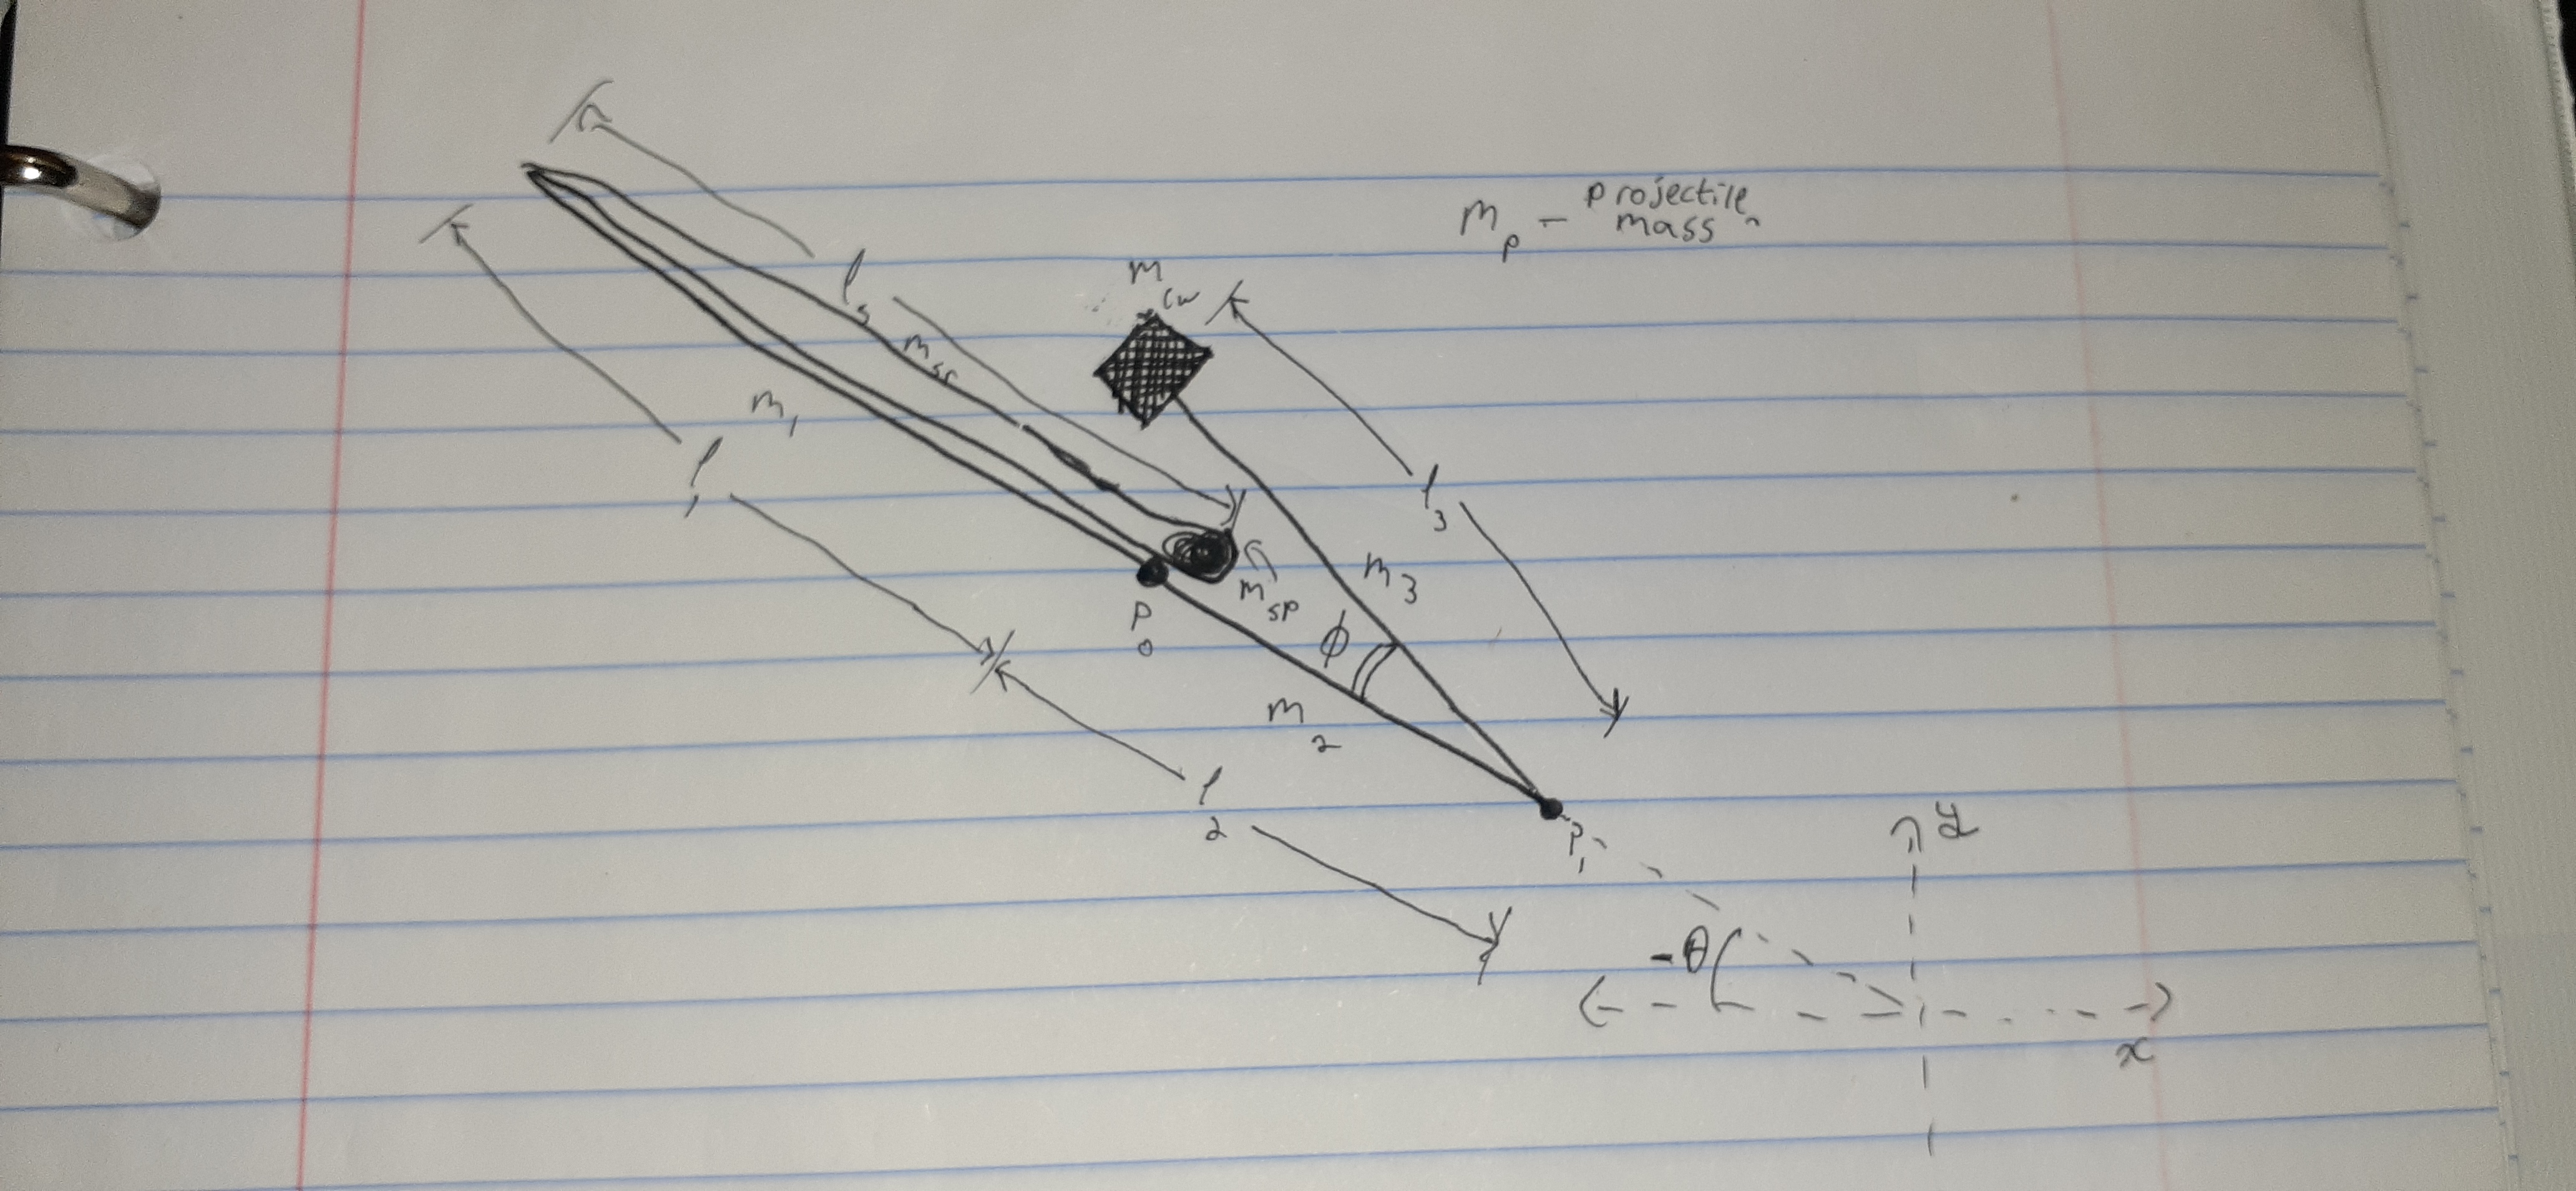 m_p – projectile mass
m_cw
l_s
m_sr
m_1
l_1
l_3
m_3
m_sp
P_0
ϕ
m_2
l_2
P_1
y
-θ
x